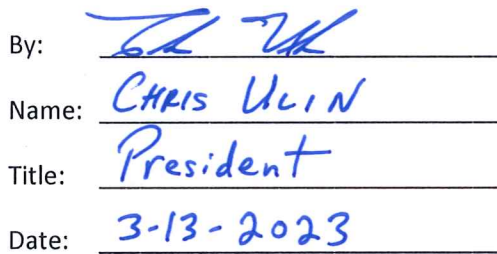 By:
Name: CHRIS ULIN
Title: President
Date: 3-13-2023